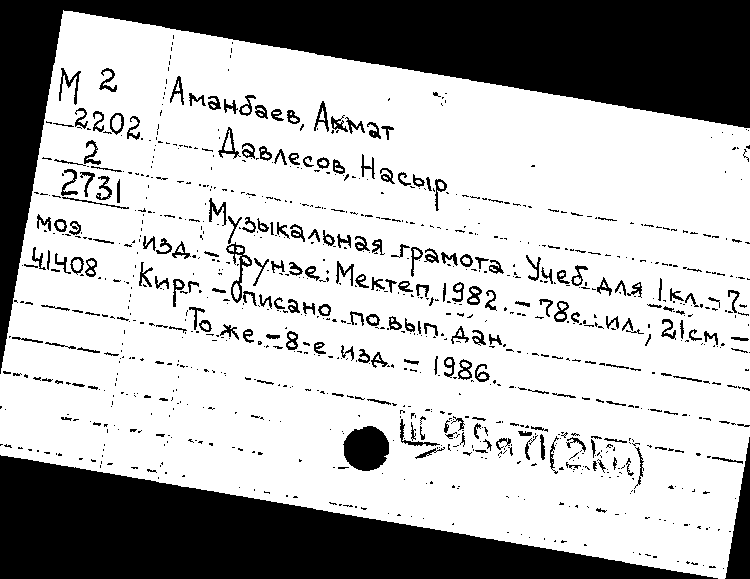 М 2
2202
2
2731
моэ
41408
Аманбаев, Ахмат
Давлесов, Насыр
Музыкальная грамота: Учеб. для 1 кл. - 7
изд. - Фрунзе: Мектеп, 1982. - 78с.: ил.; 21см. -
Кирг. - Описано по вып. дан.
То же. - 8-е изд. - 1986.
Щ 95я71(2Ки)